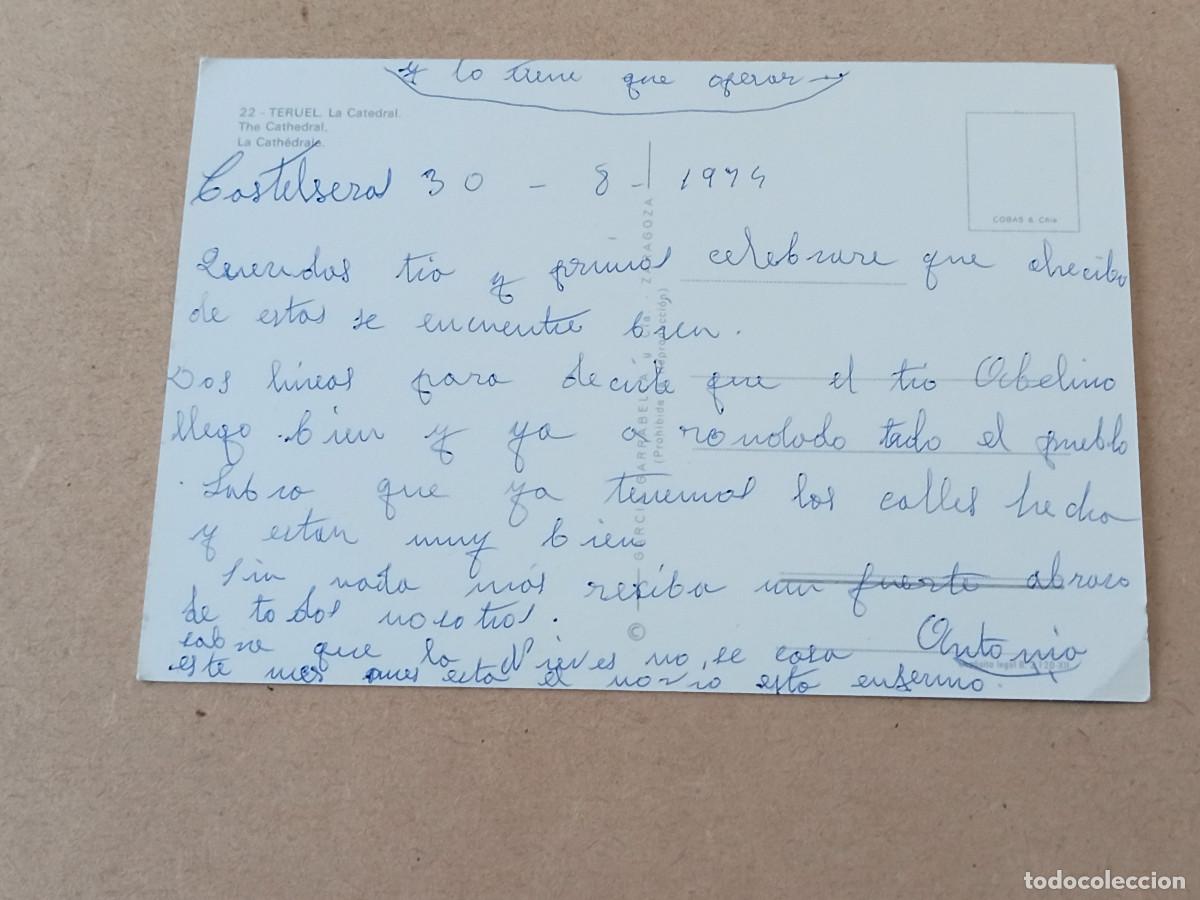 y lo tiene que operar
22 - TERUEL. La Catedral.
The Cathedral.
La Cathédrale.
COBAS & Cñia
Castelseras 30 - 8 - 1974
Queridos tio y primos celebrare que al recibo
de estas se encuentre bien.
Dos lineas para decirle que el tio Abelino
llego bien y ya a rondado todo el pueblo
Sabra que ya tenemos las calles hecha
y estan muy bien
Sin nada más reciba un fuerte abraso
de todos nosotros.
Antonio
sabra que la Nieves no se casa
este mes pues esta el novio esta enfermo.
© GARCIA GARRABELLA y Cía. ZARAGOZA
(Prohibida la reproducción)
Depósito legal B.
todocoleccion